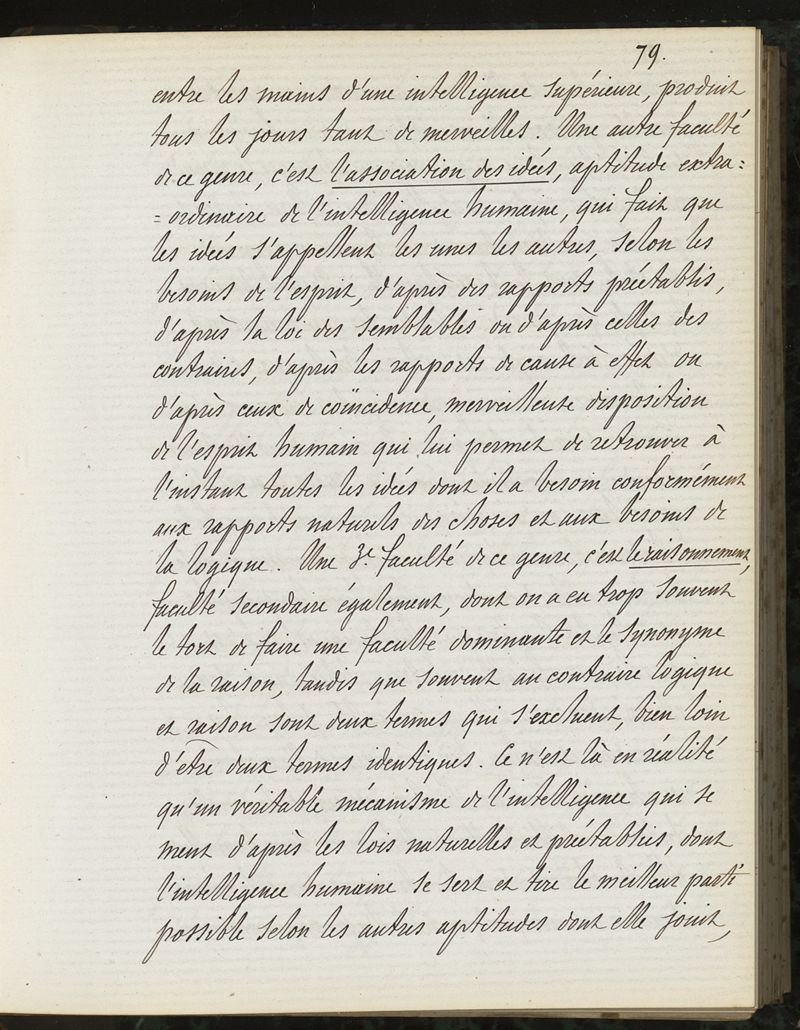 79.
entre les mains d'une intelligence supérieure, produit
tous les jours tant de merveilles. Une autre faculté
de ce genre, c'est l'association des idées, aptitude extra=
=ordinaire de l'intelligence humaine, qui fait que
les idées s'appellent les unes les autres, selon les
besoins de l'esprit, d'après des rapports préétablis,
d'après la loi des semblables ou d'après celles des
contraires, d'après les rapports de cause à effet ou
d'après ceux de coïncidence, merveilleuse disposition
de l'esprit humain qui lui permet de retrouver à
l'instant toutes les idées dont il a besoin conformément
aux rapports naturels des choses et aux besoins de
la logique. Une 3e. faculté de ce genre, c'est le raisonnement,
faculté secondaire également, dont on a eu trop souvent
le tort de faire une faculté dominante et le synonyme
de la raison, tandis que souvent au contraire logique
et raison sont deux termes qui s'excluent, bien loin
d'être deux termes identiques. Ce n'est là en réalité
qu'un véritable mécanisme de l'intelligence qui se
meut d'après les lois naturelles et préétablies, dont
l'intelligence humaine se sert et tire le meilleur parti
possible selon les autres aptitudes dont elle jouit,